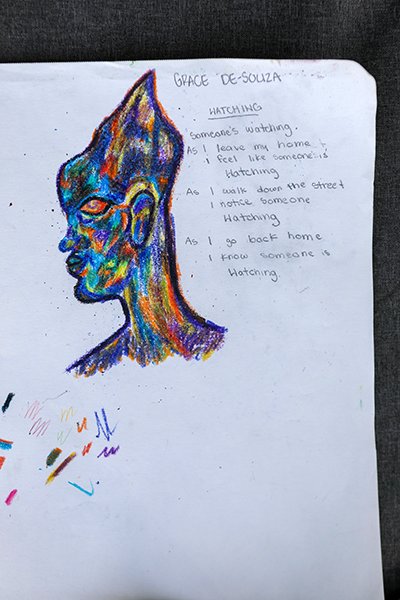 GRACE DE-SOUZA
WATCHING
Someone's watching.
As I leave my home
I feel like someone is
Watching
As I walk down the street
I notice someone
Watching
As I go back home
I know someone is
Watching